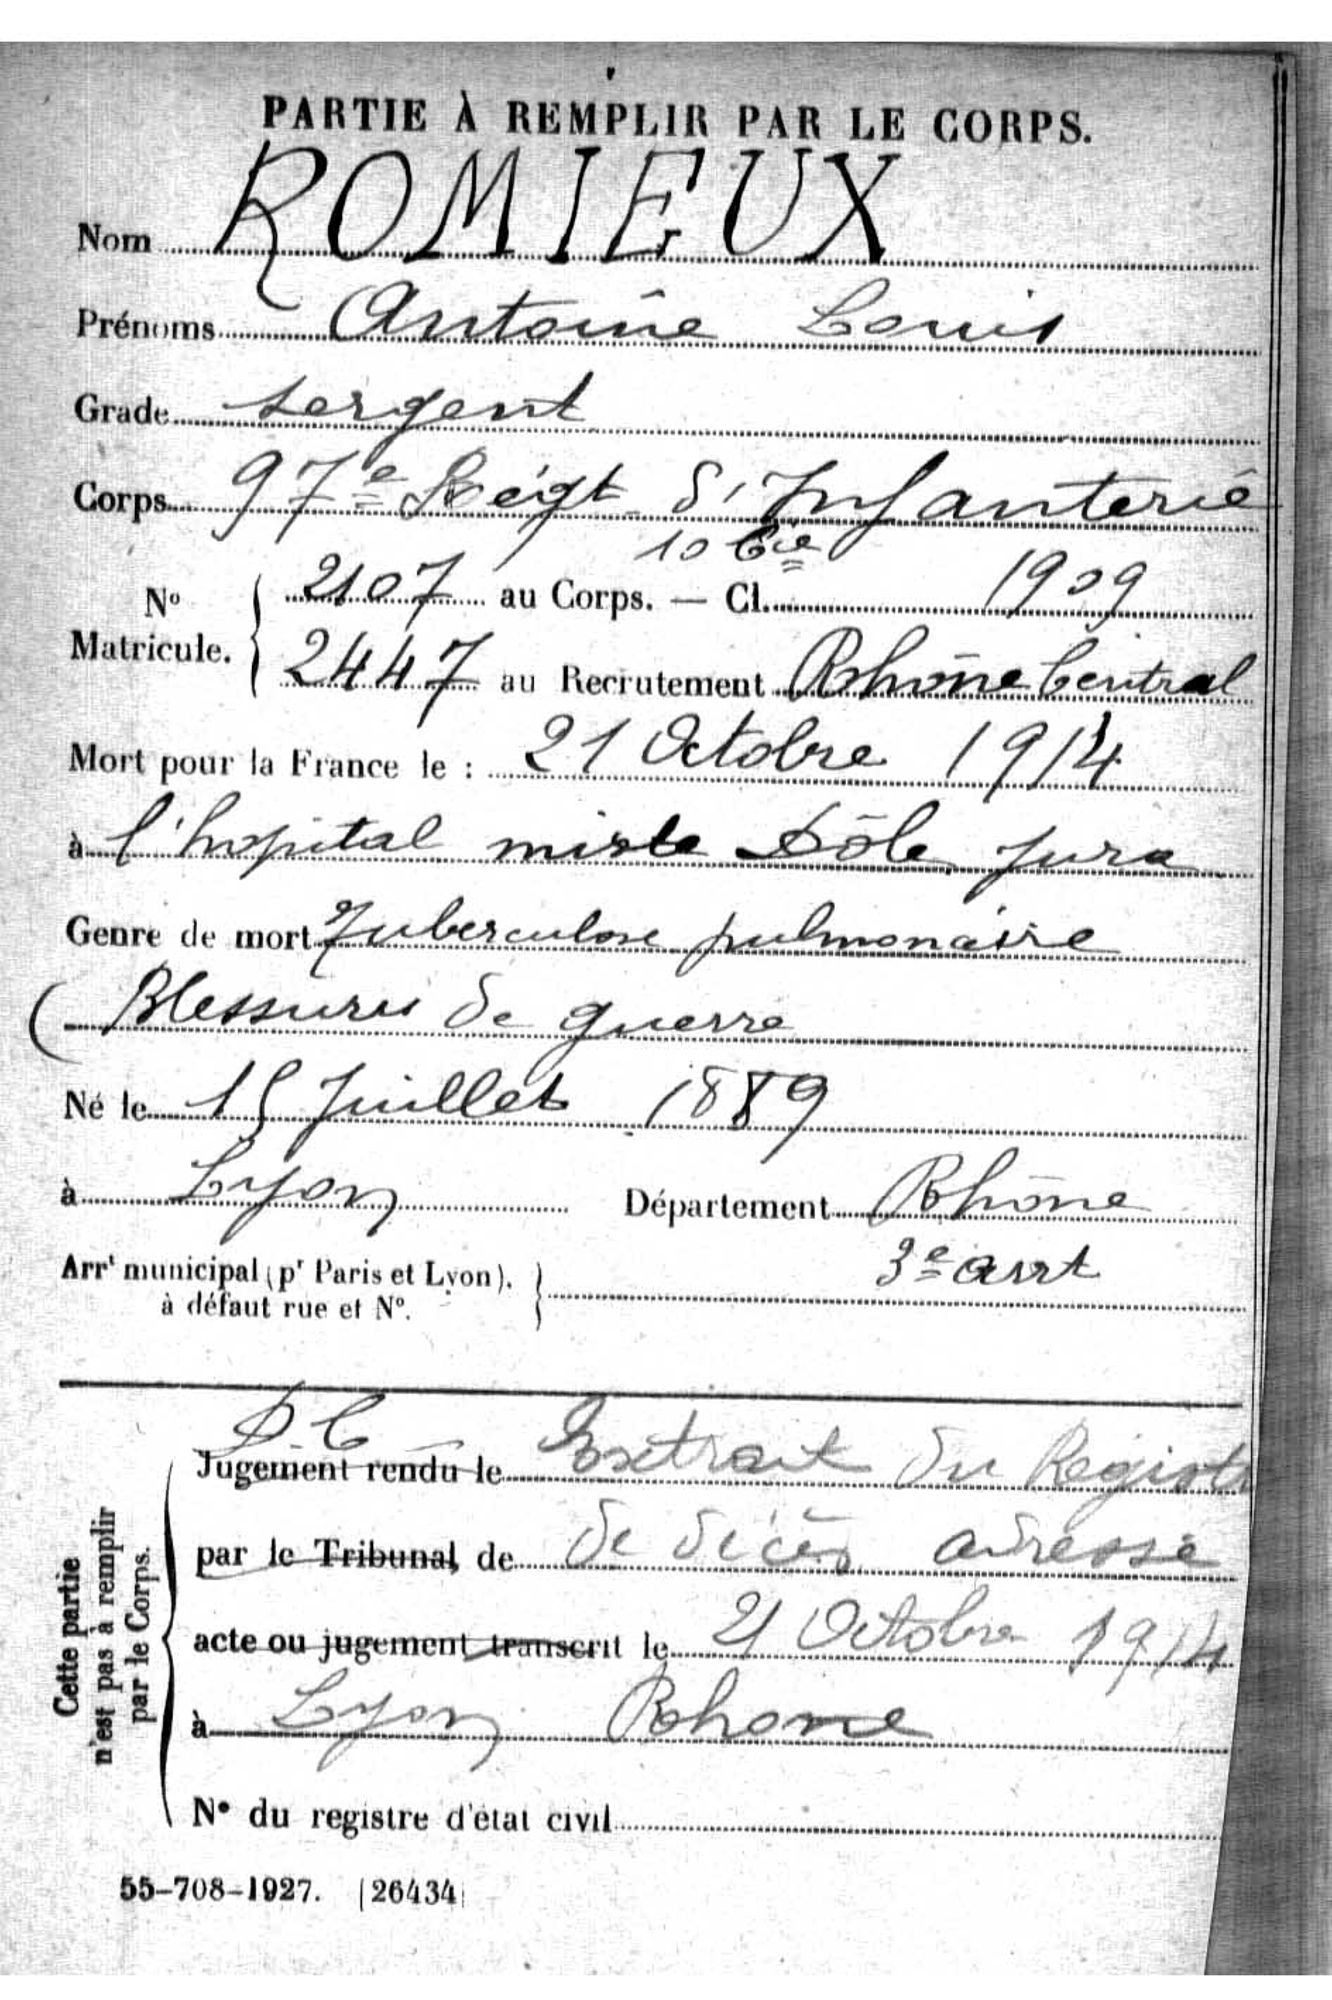 PARTIE À REMPLIR PAR LE CORPS.
Nom ROMIEUX
Prénoms Antoine Louis
Grade sergent
Corps 97e Régt d'Infanterie
10 Cie
No Matricule. { 2107 au Corps. — Cl. 1909
2447 au Recrutement Rhône Central
Mort pour la France le : 21 Octobre 1914
à l'hopital mixte Dôle Jura
Genre de mort Tuberculose pulmonaire
( Blessures de guerre
Né le 15 Juillet 1889
à Lyon Département Rhône
Arrt municipal (pr Paris et Lyon). } 3e arrt
à défaut rue et No.
D C
Jugement rendu le Extrait du Registre
par le Tribunal de de décès adressé
acte ou jugement transcrit le 21 Octobre 1914
à Lyon Rhone
No du registre d'état civil
Cette partie
n'est pas à remplir
par le Corps.
55-708-1927. [26434]